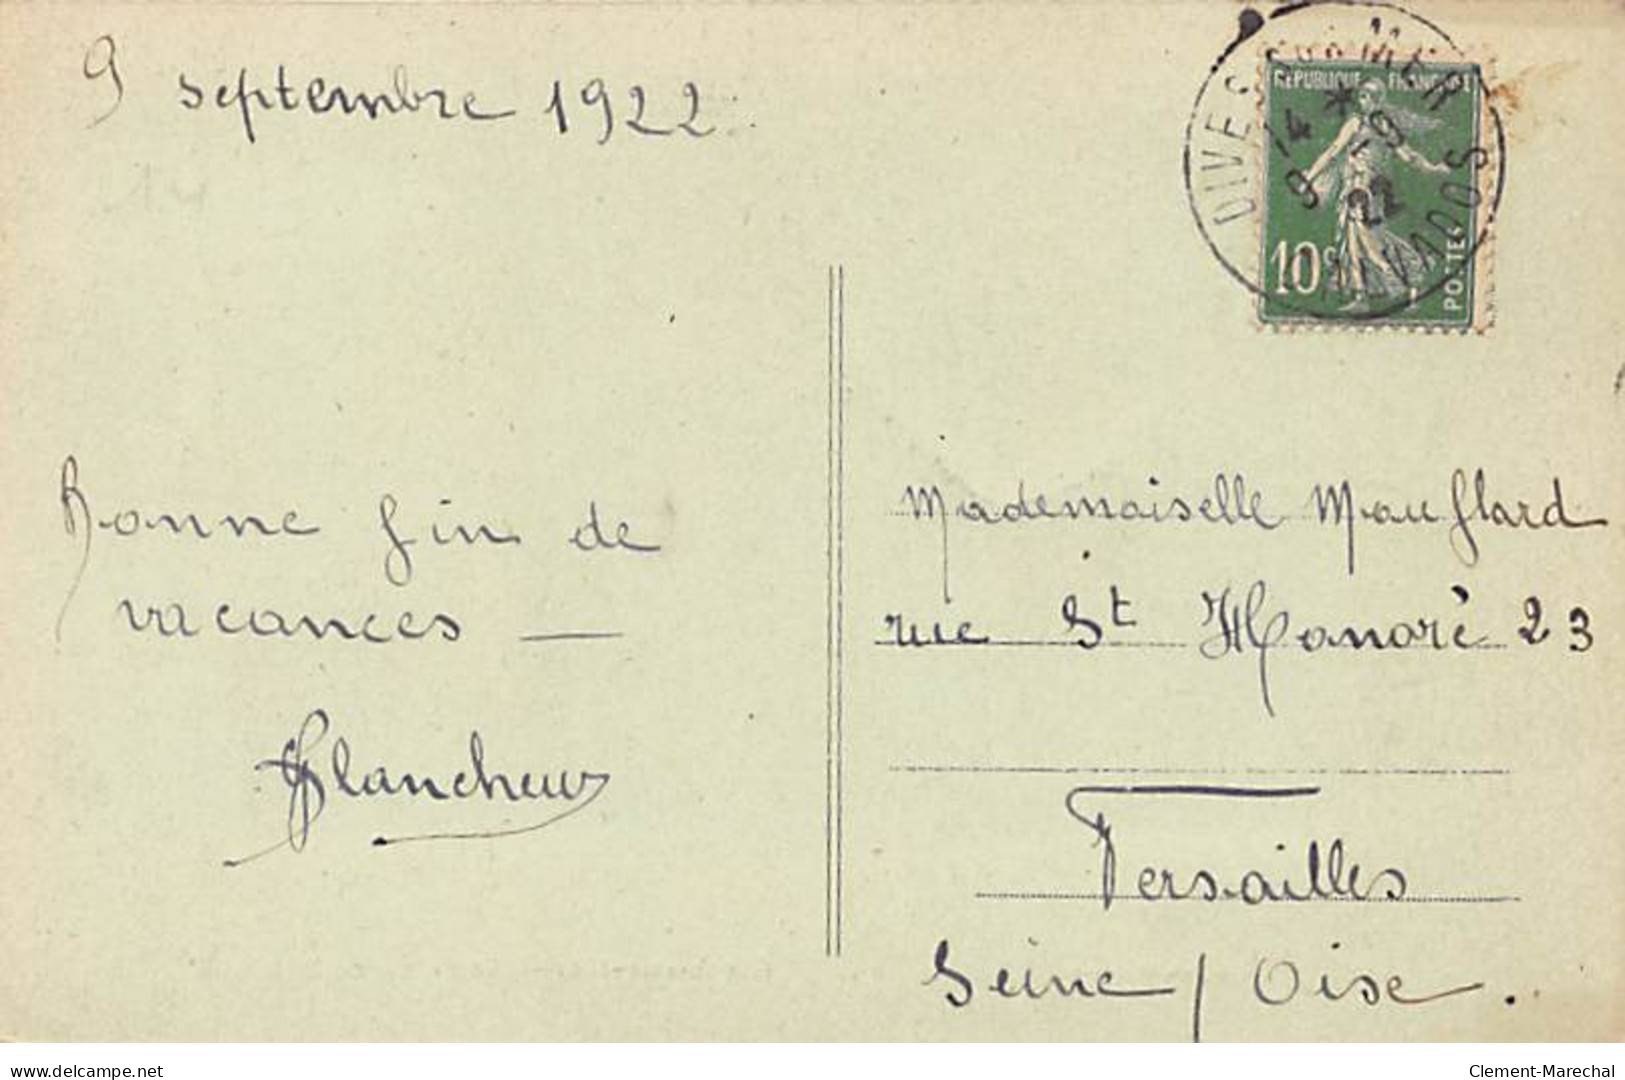 9 septembre 1922
DIVES SUR MER
14 * 9
-9
22
CALVADOS
REPUBLIQUE FRANCAISE
10c
POSTES
Bonne fin de
vacances —
Mademoiselle Mauflard
rue St Honoré 23
Versailles
Seine / Oise.
delcampe.net
Clement-Marechal